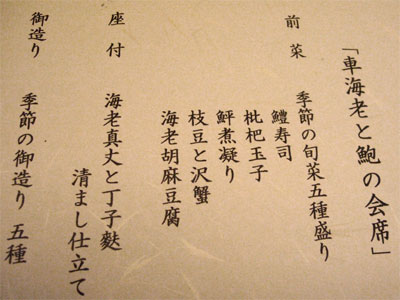 「車海老と鮑の会席」
前菜 季節の旬菜五種盛り
鱧寿司
枇杷玉子
鮃煮凝り
枝豆と沢蟹
海老胡麻豆腐
座付 海老真丈と丁子麩
清まし仕立て
御造り 季節の御造り 五種